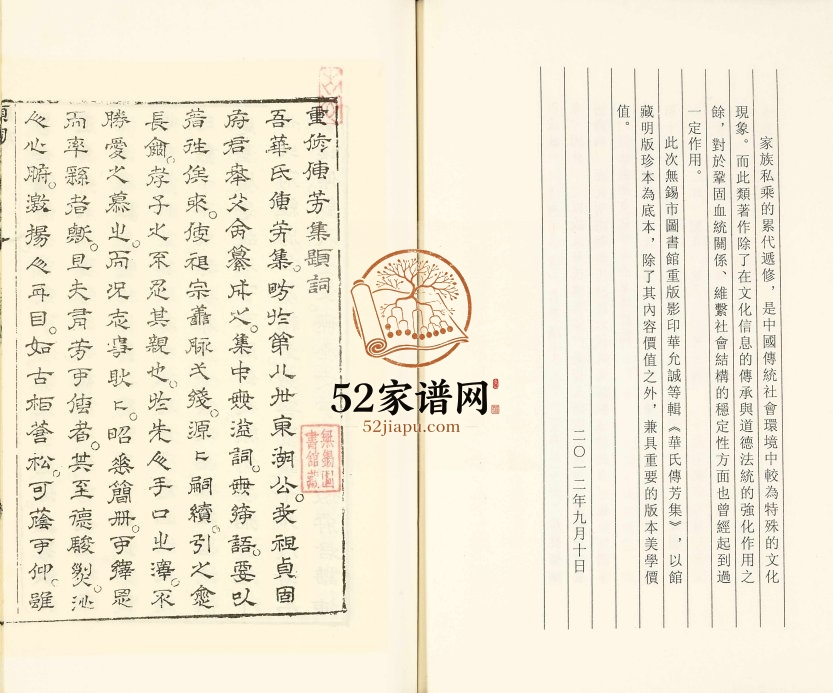 家族私乘的累代遞修，是中國傳統社會環境中較為特殊的文化
現象。而此類著作除了在文化信息的傳承與道德法統的強化作用之
餘，對於鞏固血統關係、維繫社會結構的穩定性方面也曾經起到過
一定作用。
此次無錫市圖書館重版影印華允誠等輯《華氏傳芳集》，以館
藏明版珍本為底本，除了其內容價值之外，兼具重要的版本美學價
值。
二〇一二年九月十日
重修傳芳集題詞
吾華氏傳芳集。昉於第八世東湖公。我祖貞固
府君奉父命纂成之。集中無溢詞。無綺語。要以
著往俟來。使祖宗蕭脉弋綫。源々嗣續。引之愈
長爾。孝子之不忍其親也。於先人手口之澤。不
勝愛之慕之。而況志事耿々。昭垂簡冊。可繹思
而率繇者歟。且夫
芳可傳者。其至德駿烈。沁
人心腑。激揚人耳目。如古柏蒼松。可蔭可仰。雖
無錫圖
書館藏
52家谱网
52jiapu.com